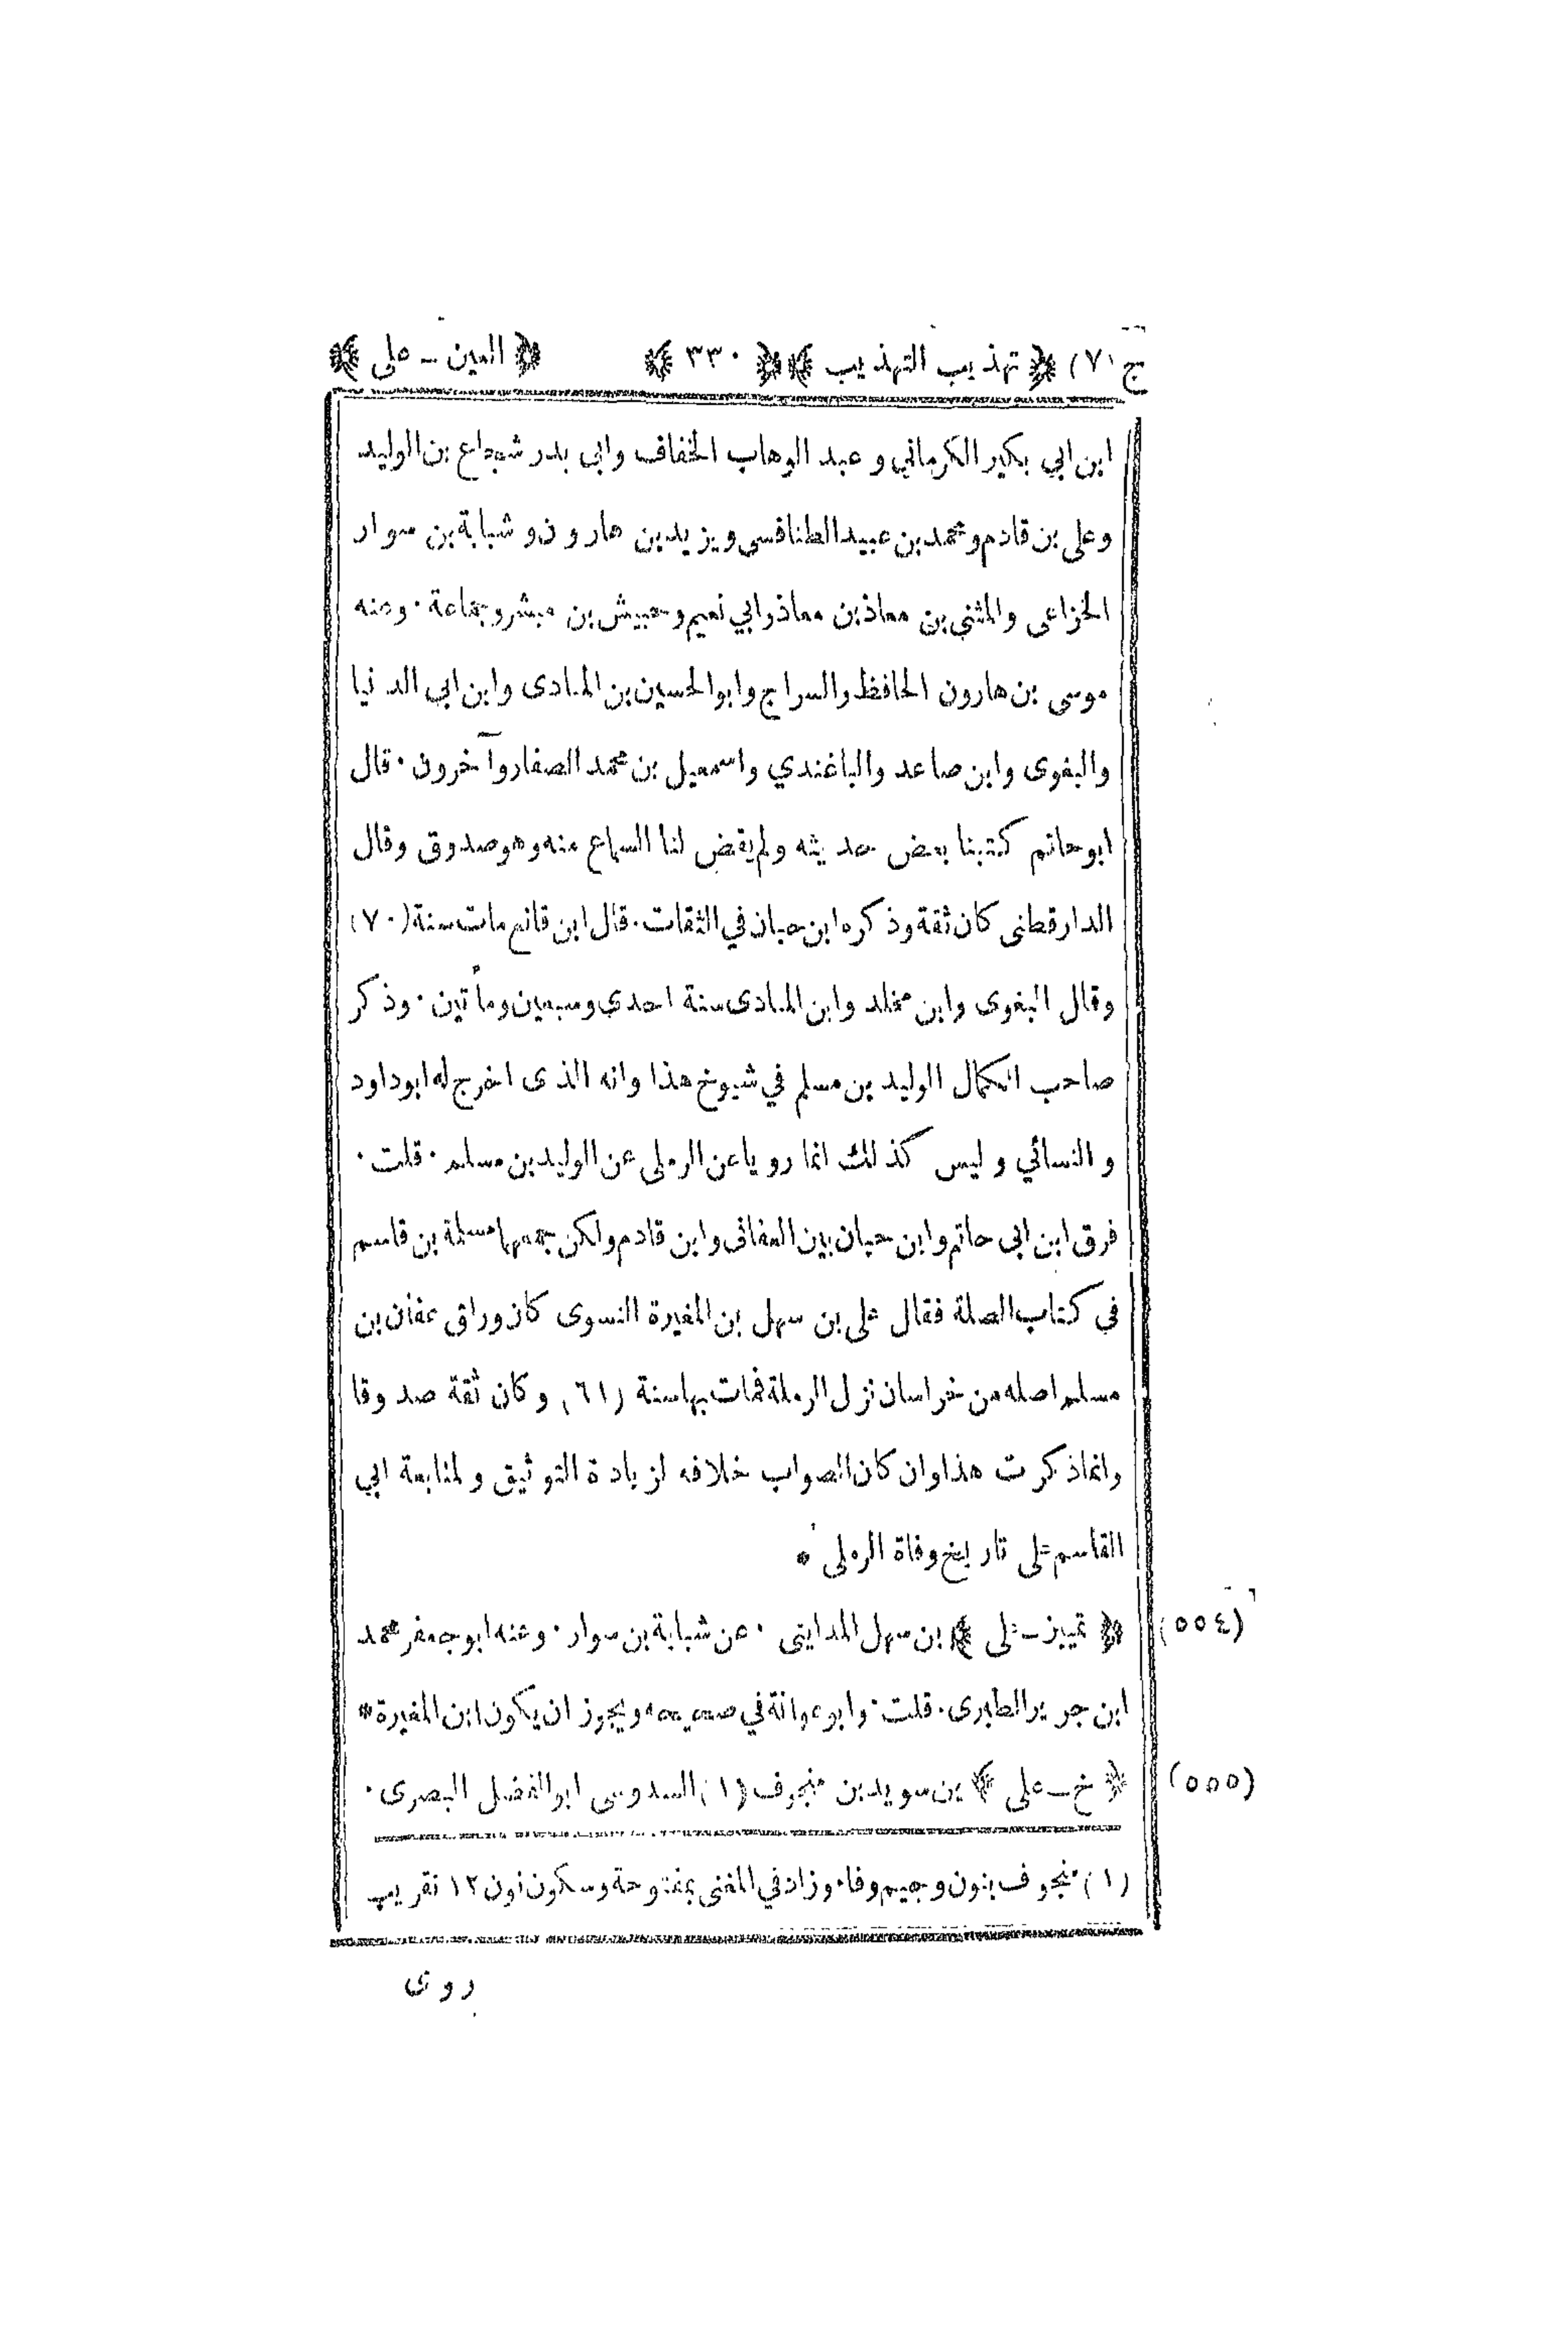 ج (٧) ﴿ تهذيب التهذيب ﴾ ﴿ ٣٣٠ ﴾ ﴿ العين ـ على ﴾
ابن ابي بكير الكرماني و عبد الوهاب الخفاف وابى بدر شجاع بن الوليد
وعلى بن قادم ومحمد بن عبيد الطنافسى ويزيد بن هارون وشبابة بن سوار
الخزاعى والمثنى بن معاذ بن معاذ وابي نعيم وحبيش بن مبشر وجماعة · وعنه
موسى بن هارون الحافظ والسراج وابو الحسين بن المنادى وابن ابي الدنيا
والبغوى وابن صاعد والباغندي واسمعيل بن محمد الصفار وآخرون · قال
ابو حاتم كتبنا بعض حديثه ولم يقض لنا السماع منه وهو صدوق وقال
الدار قطنى كان ثقة وذكره ابن حبان في الثقات · قال ابن قانع مات سنة (٧٠)
وقال البغوى وابن مخلد وابن المنادى سنة احدى وسبعين ومأتين · وذكر
صاحب الكمال الوليد بن مسلم في شيوخ هذا وانه الذى اخرج له ابو داود
و النسائي و ليس كذلك انما رويا عن الرملى عن الوليد بن مسلم · قلت ·
فرق ابن ابى حاتم وابن حبان بين العفانى وابن قادم ولكن جمعهما مسلمة بن قاسم
في كتاب الصلة فقال على بن سهل بن المغيرة النسوى كان وراق عفان بن
مسلم اصله من خراسان نزل الرملة فمات بها سنة (٦١) وكان ثقة صدوقا
وانما ذكرت هذا وان كان الصواب خلافه لزيادة التوثيق ولمتابعة ابي
القاسم على تاريخ وفاة الرملى *
(٥٥٤) ﴿ تمييز ـ على ﴾ بن سهل المدايني · عن شبابة بن سوار · وعنه ابو جعفر محمد
ابن جرير الطبرى · قلت · وابو عوانة في صحيحه ويجوز ان يكون ابن المغيرة *
(٥٥٥) ﴿ خ ـ على ﴾ بن سويد بن منجوف (١) السدوسى ابو الفضل البصرى ·
(١) منجوف بنون وجيم وفاء وزاد في المغنى بمفتوحة وسكون نون ١٢ تقريب
روى